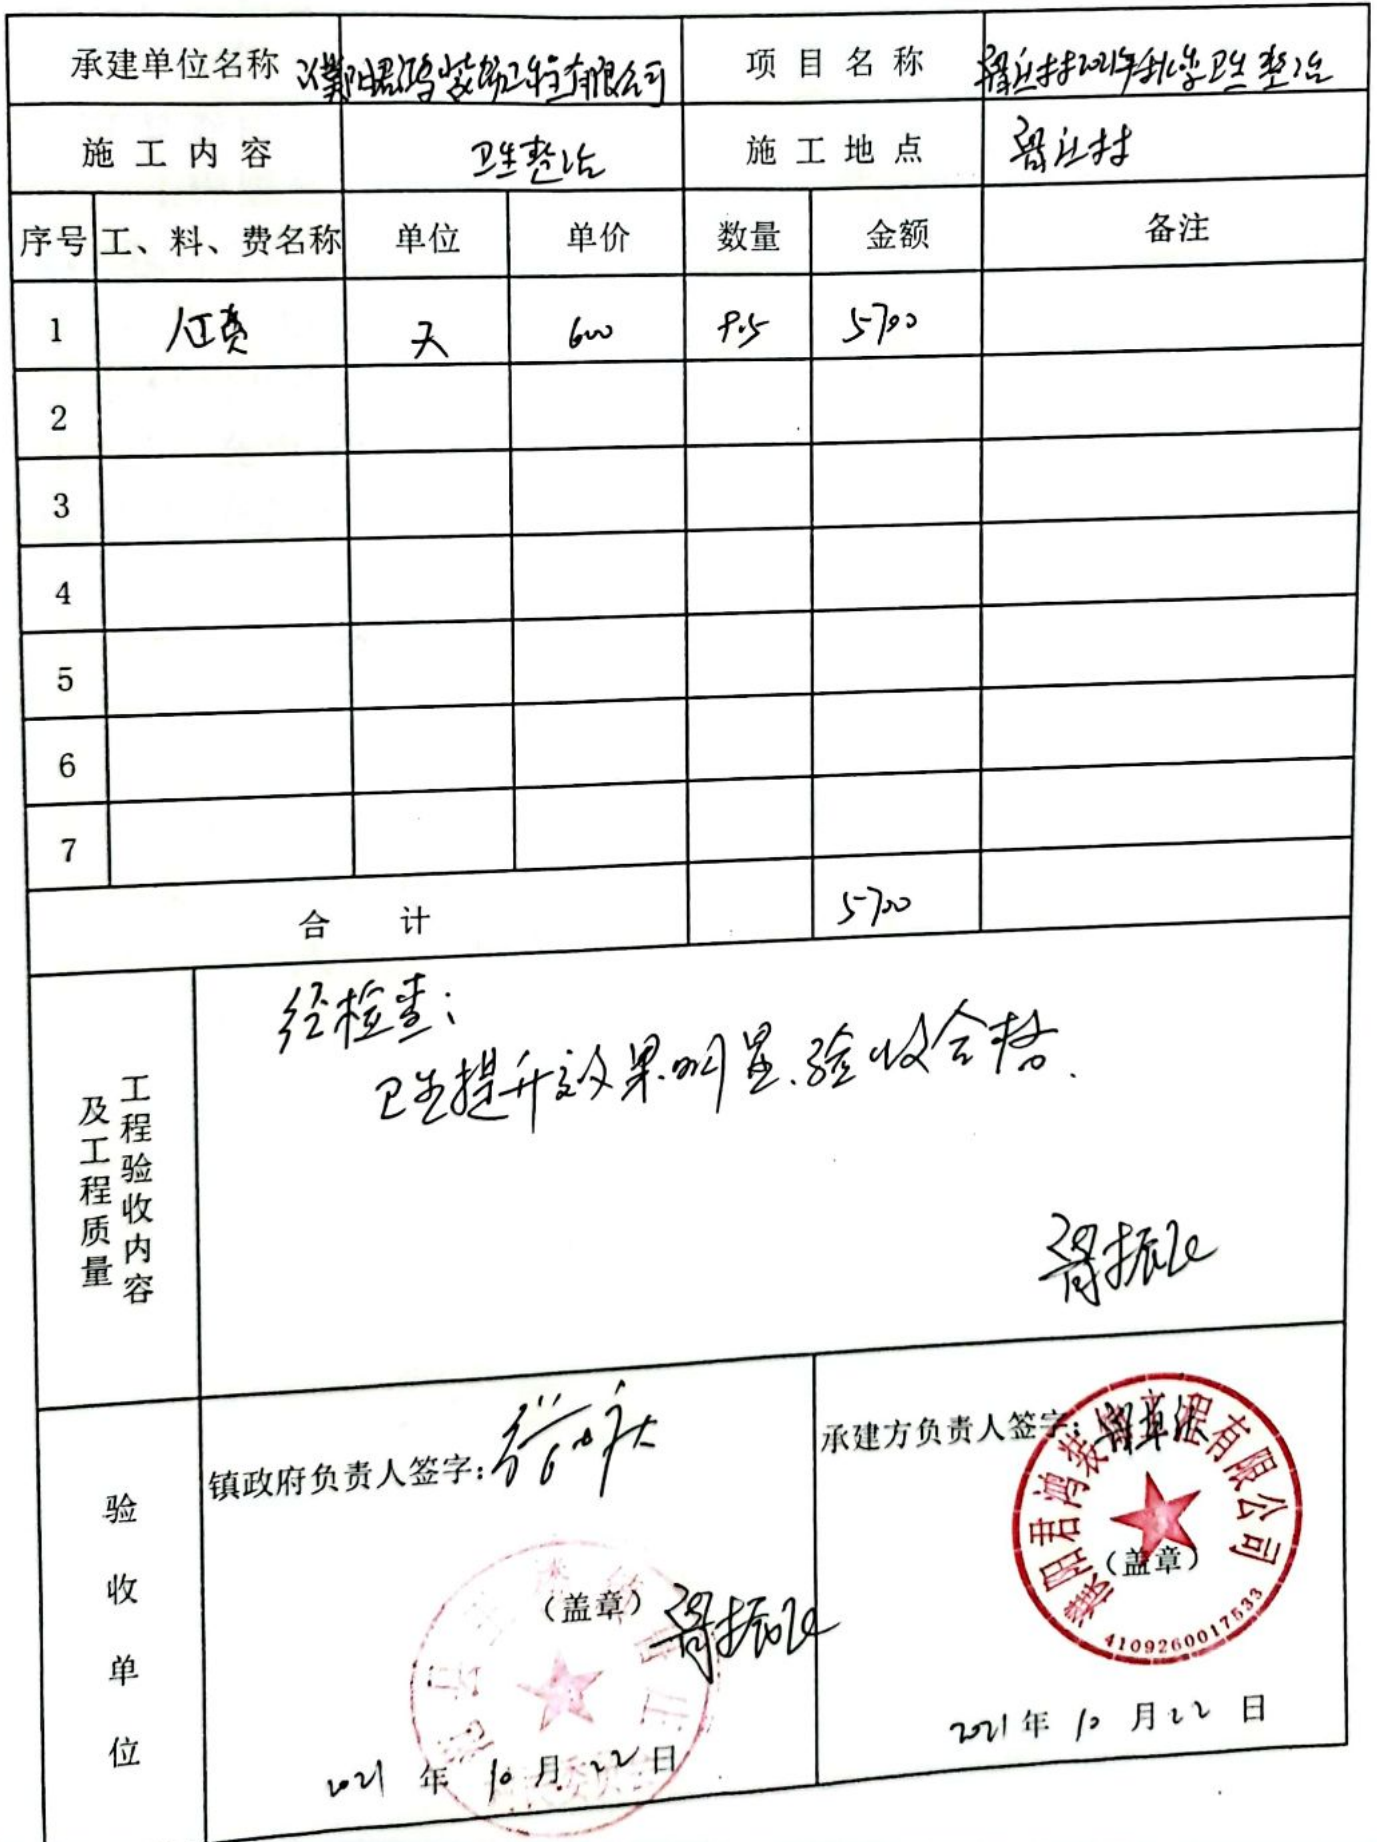 承建单位名称 濮阳君鸿装饰工程有限公司 项目名称 胥丘村2021年秋季卫生整治
施工内容 卫生整治 施工地点 胥丘村
序号 工、料、费名称 单位 单价 数量 金额 备注
1 人工费 天 600 9.5 5700
2
3
4
5
6
7
合 计 5700
工程验收内容
及工程质量
经检查:
卫生提升效果明显.验收合格.
胥振
验收单位
镇政府负责人签字:
(盖章)
胥振
2021 年 10 月 22 日
承建方负责人签字:
濮阳君鸿装饰工程有限公司
(盖章)
4109260017533
2021 年 10 月 22 日